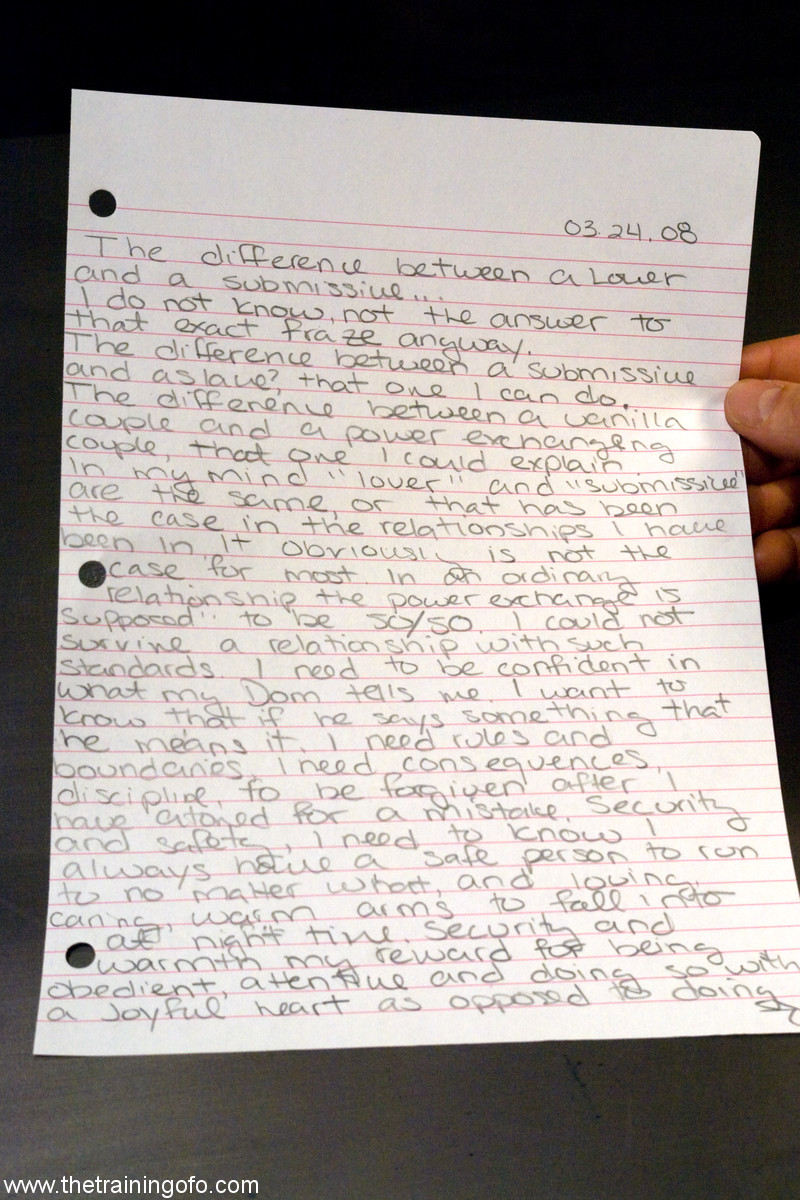 03.24.08
The difference between a Lover
and a submissive...
I do not know, not the answer to
that exact fraze anyway.
The difference between a submissive
and a slave? that one I can do.
The difference between a vanilla
couple and a power exchangeing
couple, that one I could explain
In my mind "lover" and "submissive"
are the same, or that has been
the case in the relationships I have
been in. It obviously is not the
case for most. In an ordinary
relationship the power exchange is
"supposed" to be 50/50. I could not
survive a relationship with such
standards. I need to be confident in
what my Dom tells me. I want to
know that if he says something that
he means it. I need rules and
boundaries. I need consequences,
discipline, to be forgiven after I
have atoned for a mistake. Security
and safety, I need to know I
always have a safe person to run
to no matter what, and loving,
caring, warm arms to fall into
at night time. Security and
warmth my reward for being
obedient, attentive and doing so with
a joyful heart as opposed to doing
www.thetrainingofo.com